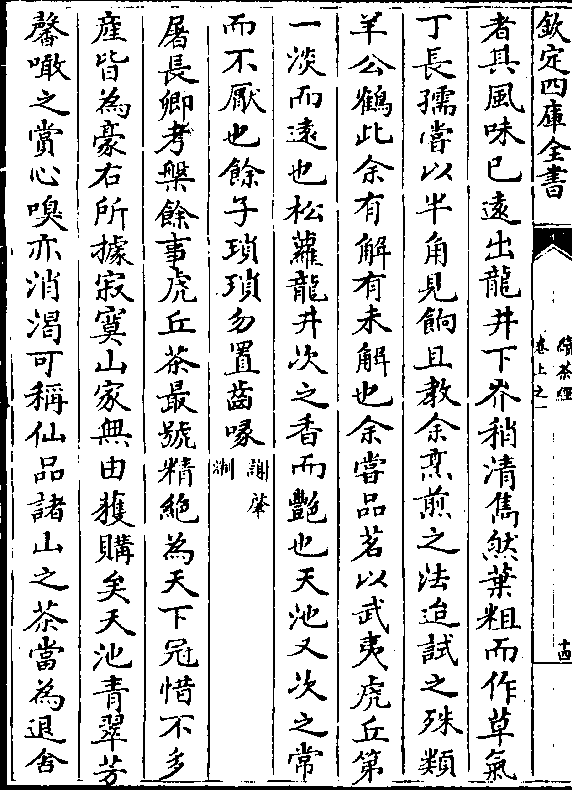 欽定四庫全書
續茶經
卷上之一
十四
者其風味已遠出龍井下岕稍清雋然葉粗而作草氣
丁長孺嘗以半角見餉且教余烹煎之法迨試之殊類
羊公鶴此余有解有未解也余嘗品茗以武夷虎丘第
一淡而遠也松蘿龍井次之香而豔也天池又次之常
而不厭也餘子瑣瑣勿置齒喙謝肇淛
屠長卿考槃餘事虎丘茶最號精絶為天下冠惜不多
産皆為豪右所據寂寞山家無由獲購矣天池青翠芳
馨噉之賞心嗅亦消渴可稱仙品諸山之茶當為退舍